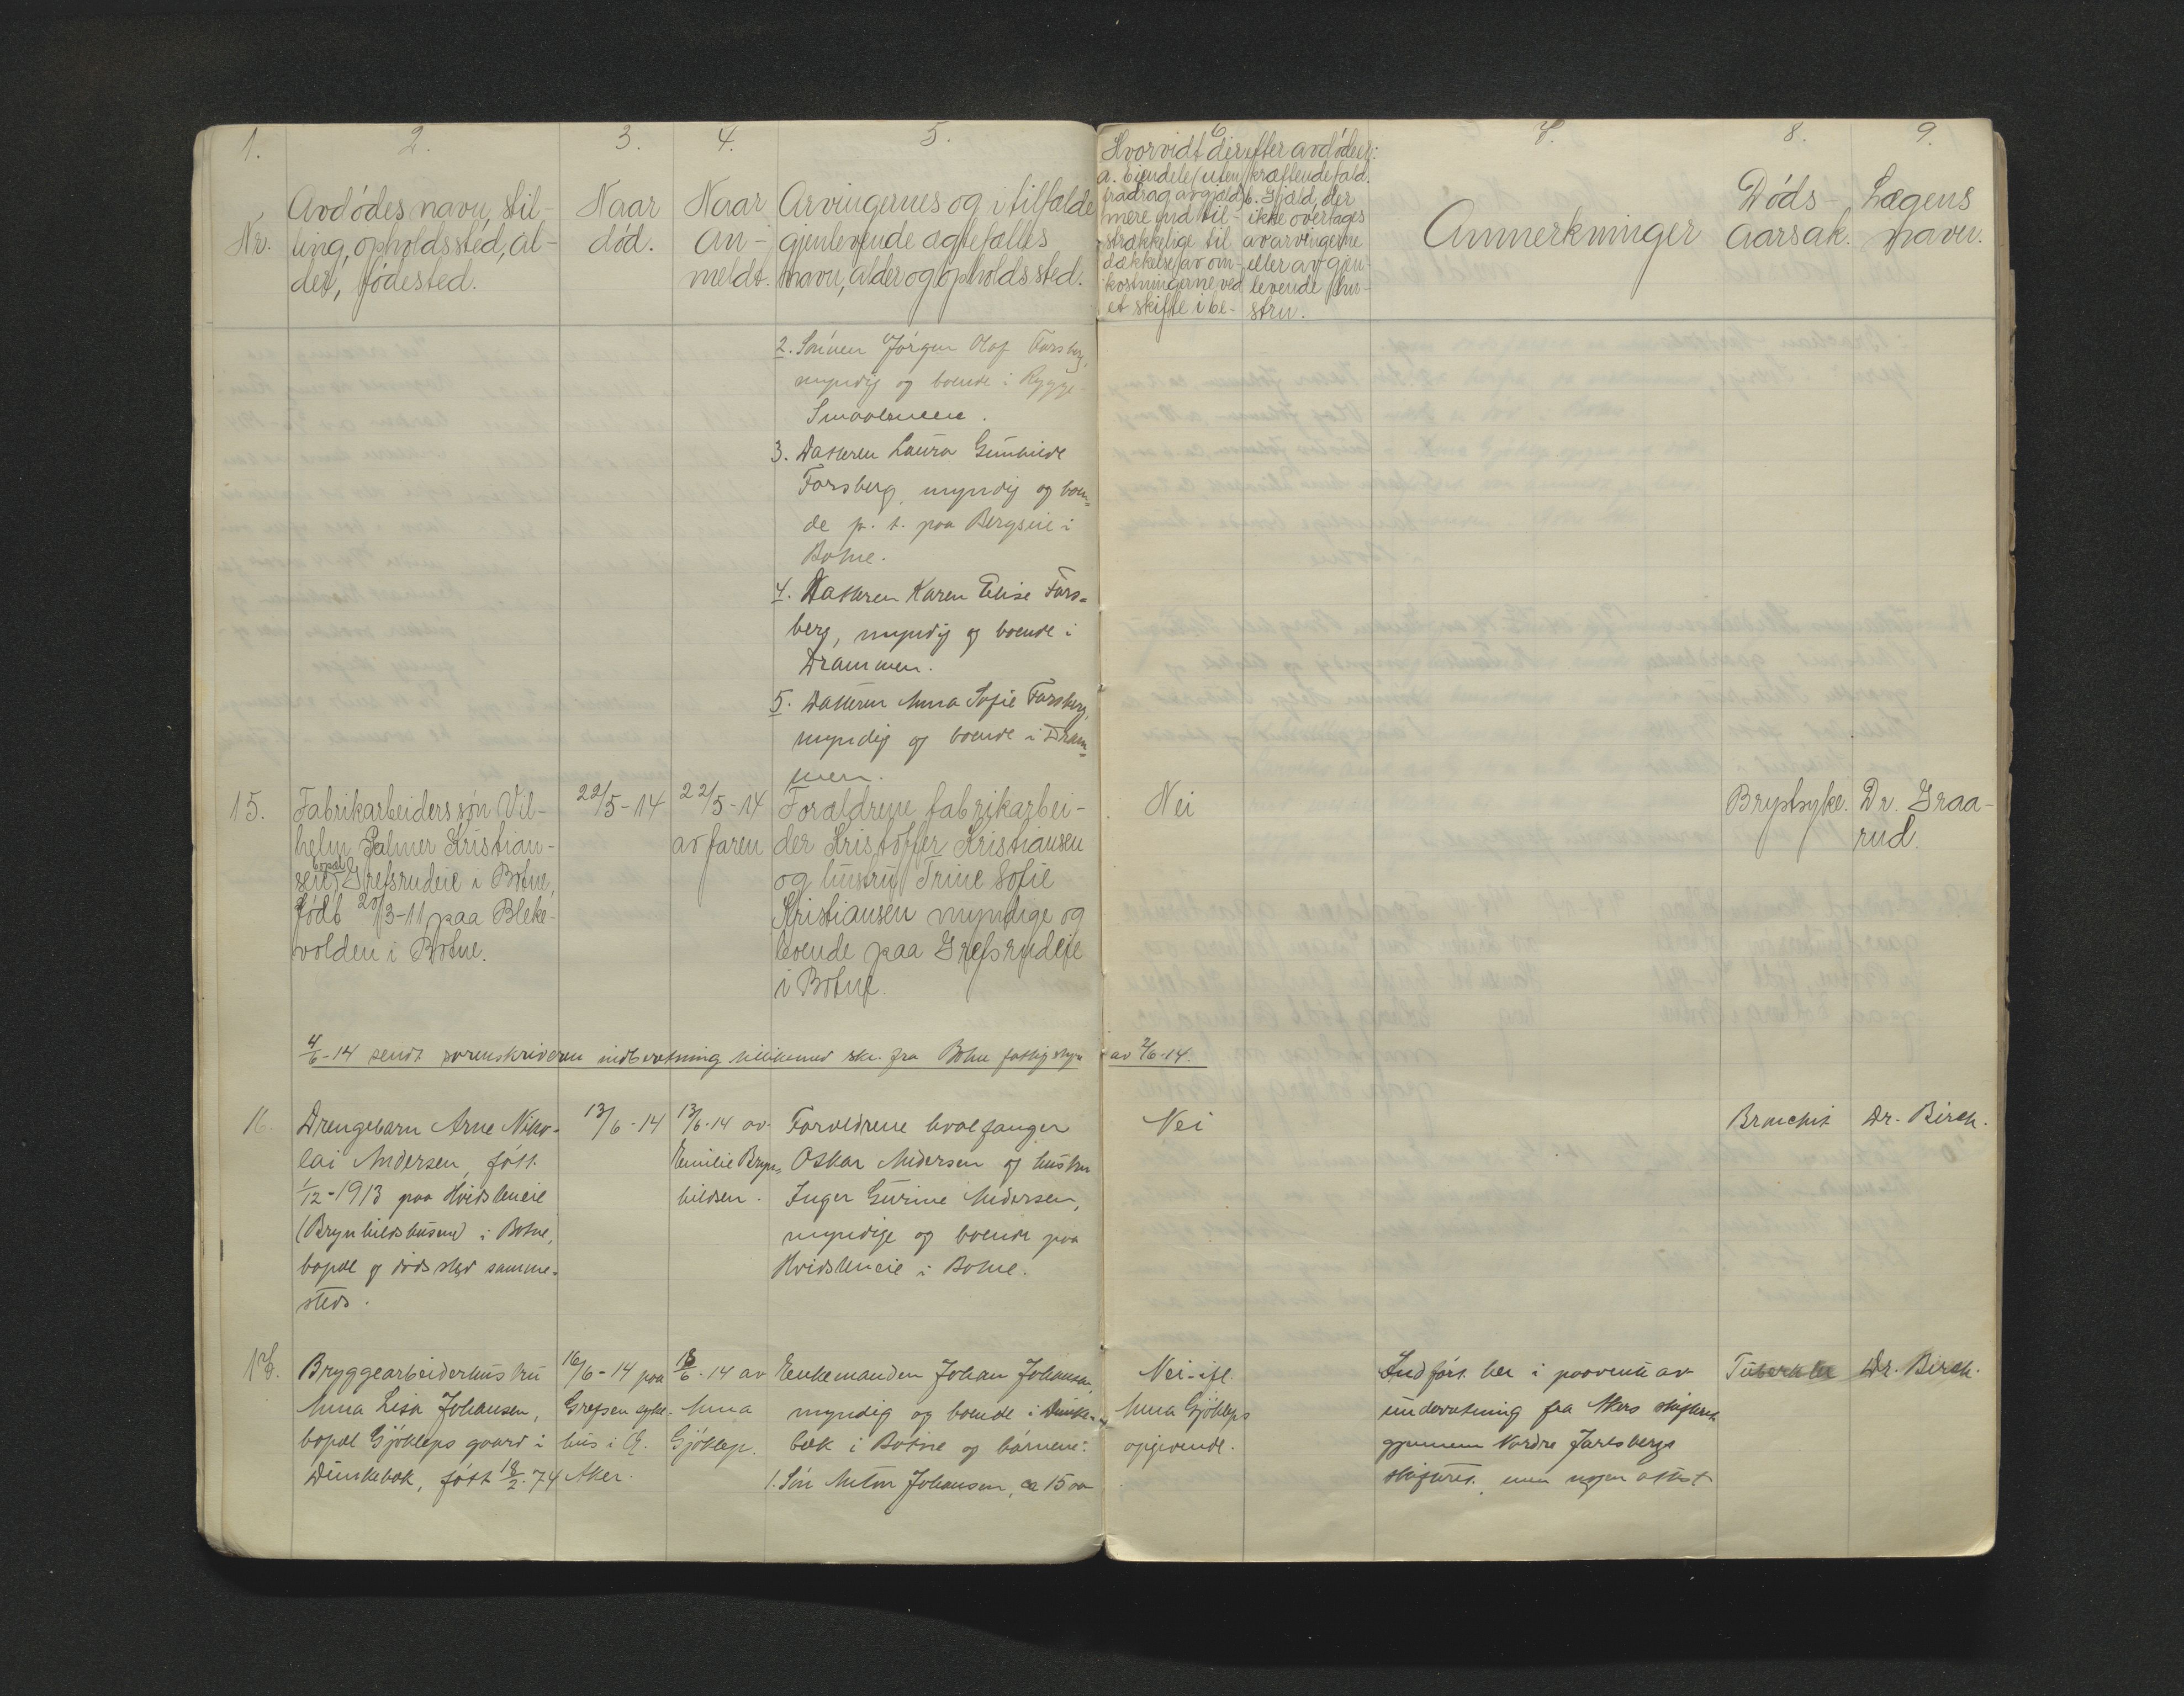 1. 2. 3. 4. 5.
Nr.
Avdødes navn, stil-
ling, opholdssted, al-
der, fødested.
Naar
død.
Naar
an-
meldt.
Arvingernes og i tilfælde
gjenlevende ægtefælles
navn, alder og opholdssted.
6. 7. 8. 9.
Hvorvidt der efter avdøde er:
a. Eiendele (uten
fradrag av gjæld)
mere end til-
strækkelige til
dækkelse av om-
kostningerne ved
et skifte i be-
kræftende fald.
b. Gjæld, der
ikke overtages
av arvingerne
eller av gjen-
levende hu-
stru.
Anmerkninger
Døds-
aarsak.
Lægens
navn.
2. Sønnen Jørgen Olaf Forsberg,
myndig og boende i Rygge
Smaalenene.
3. Datteren Laura
Forsberg, myndig og boen=
de p. t. paa Bergseie i
Botne.
4. Datteren Karen Elise Fors=
berg, myndig og boende i
Drammen.
5. Datteren Anna Sofie Forsberg,
myndig og boende i Dram=
men.
15.
Fabrikarbeiderssøn Vil-
helm Palmer Kristian-
sen, bopæl Grefsrudeie i Botne,
født 20/3-11 paa Bleke-
volden i Botne.
22/5-14
22/5-14
av faren
Forældrene fabrikarbei-
der Kristoffer Kristiansen
og hustru Trine Sofie
Kristiansen myndige og
boende paa Grefsrudeie
i Botne.
Nei
Brystsyke.
Dr. Graa-
rud.
4/6-14 sendt sorenskriveren indberetning tillikemed skr. fra Botne fattigstyre av 2/6-14.
16.
Drengebarn Arne Niko=
lai Andersen, født
1/12-1913 paa Hvidsteneie
(Brynhildshusene) i Botne,
bopæl og dødssted samme=
steds.
13/6-14
13/6-14 av
Emilie Bryn=
hildsen.
Forældrene hvalfanger
Oskar Andersen og hustru
Inger Gurine Andersen,
myndige og boende paa
Hvidsteneie i Botne.
Nei
Bronchit
Dr. Birch.
17.
Bryggearbeiderhustru
Anna Lisa Johansen,
bopæl Gjøkleps gaard i
Dunkebæk, født 18/2-74
16/6-14 paa
Grefsen syke-
hus i
Aker.
18/6-14 av
Anna
Gjøklep.
Enkemanden Johan Johansen,
myndig og boende i Dunke=
bæk i Botne og børnene:
1. Søn Anton Johansen, ca 15 aar
Nei-ifl.
Anna Gjøkleps
opgivende.
Indført her i paavente av
underretning fra Akers skifteret
gjennem Nordre Jarlsbergs
skifteret, men nogen attest
Tuberkler
Dr. Birch.